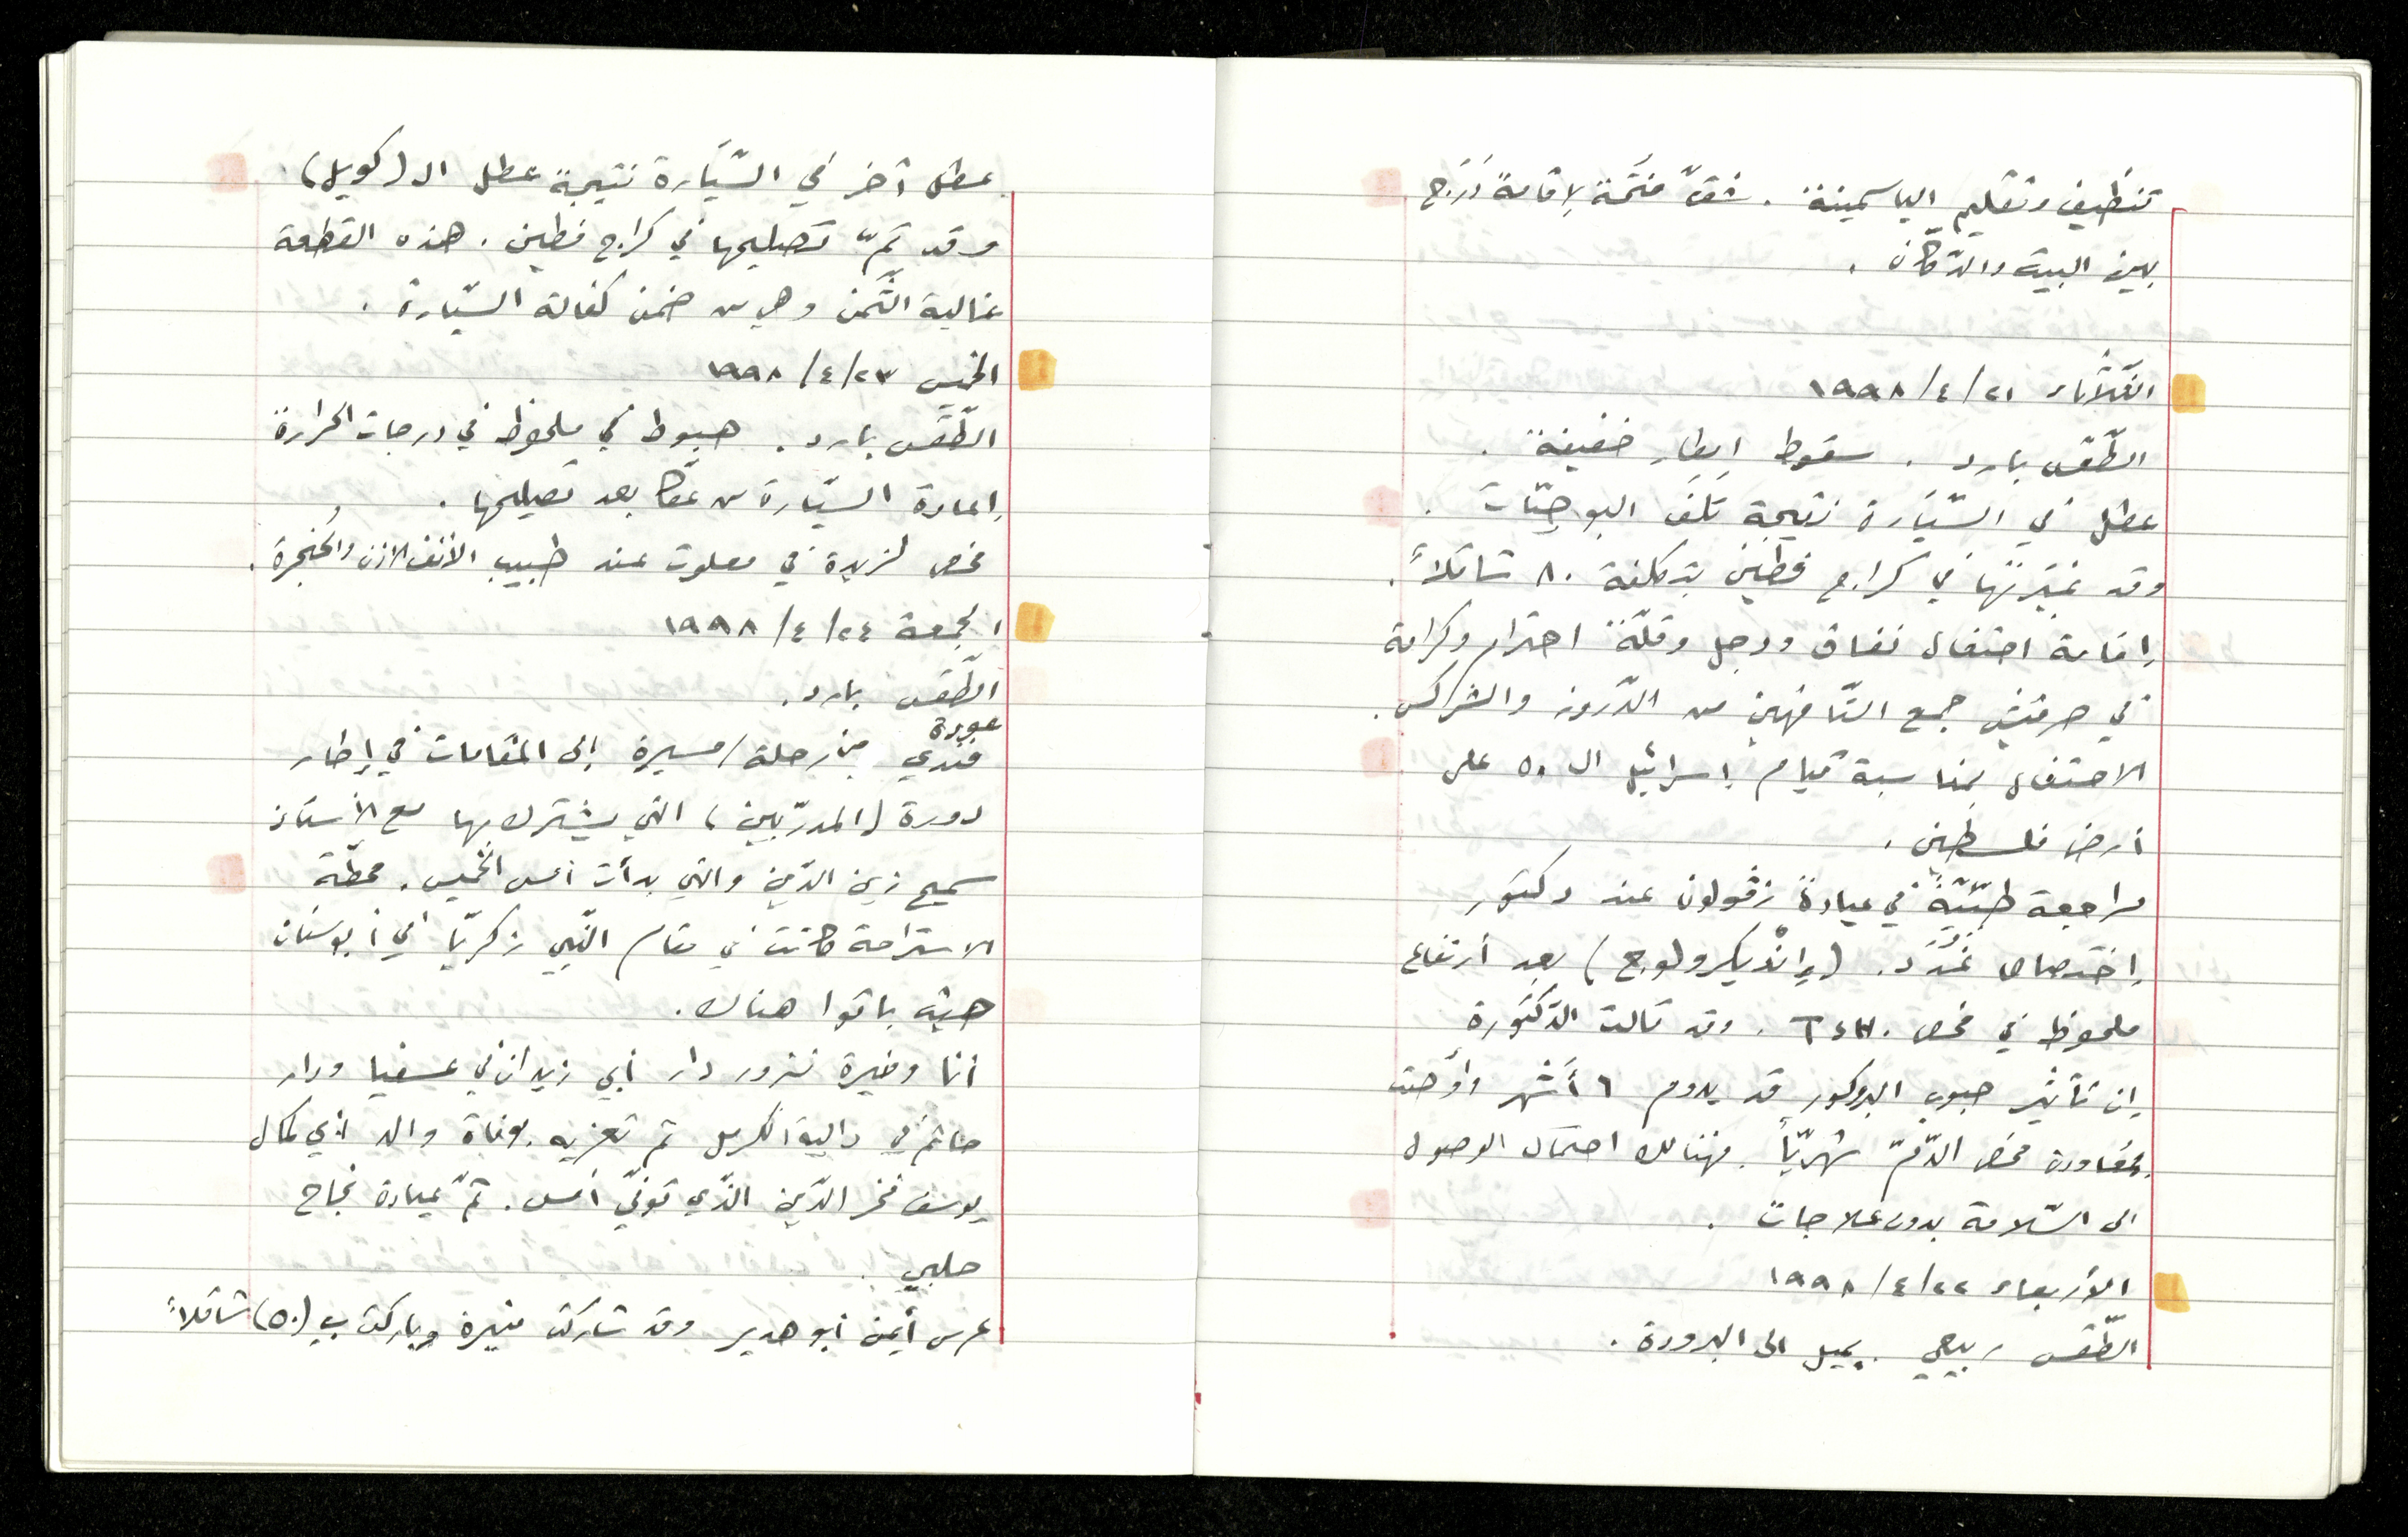 تنظيف وتقليم الياسمينة. شقّ فتحة لإقامة دَرَج
بين البيت والدّكّان.
الثّلاثاء ٢١/٤/١٩٩٨
الطّقس بارد. سقوط امطارٍ خفيفة.
عطل في السّيّارة نتيجة تَلَف البوجيّات.
وقد غيّرتها في كراج فطين بتكلفة ٨٠ شاقلاً.
إقامة احتفال نفاق ودجل وقلّة احترام وكرامة
في حرفيش جمع التّافهين من الدّروز والشراكس.
الاحتفال بمناسبة قيام إسرائيل ال ٥٠ على
أرض فلسطين.
مراجعة طبّيّة في عيادة زڤولون عند دكتور
إختصاص غُدَد. (إنْديكرولوج) بعد أرتفاع
ملحوظ في فحص. وقد قالت الدّكتورة
إن تأثير حبوب البروكور قد يدوم ٦ أشهر وأوصت
بمعاودة فحص الدّمّ شهريّاً. فهنالك احتمال الوصول
الى السّلامة بدون علاجات.
الأربعاء ٢٢/٤/١٩٩٨
الطّقس ربيعي. يميل الى البرودة.
عطل آخر في السّيّارة نتيجة عطل ال (كويل).
وقد تمّ تصليحها في كراج فطين. هذه القطعة
غالية الثّمن وهي من ضمن كفالة السّيّارة.
الخميس ٢٣/٤/١٩٩٨
الطّقس بارد. هبوط في ملحوظ في درجات الحرارة
إعادة السّيّارة من عكّا بعد تصليحها.
فحص لزبيدة في معلوت عند طبيب الأنف الاذن والحُنجرة.
الجمعة ٢٤/٤/١٩٩٨
الطّقس بارد.
عودة
فندي من رحلة/مسيرة إلى المقامات في إطار
دورة (المدرّبين) التي يشترك بها مع الأستاذ
سميح زين الدّين والتي بدأت أمس الخميس. محطّة
الاستراحة كانت في مقام النّبي زكريّا في أبو سنان
حيث باتوا هناك.
أنا ومنيرة نزور دار أبي زيدان في عسفيا ودار
حاتم في دالية الكرمل تم تعزيه بوفاة والد أبي كمال
يوسف فخر الدّين الذّي توفّي أمس. تمّ عيادة نجاح
حلبي.
عرس أيمن أبو هدير وقد شاركت منيرة وباركت بِ (٥٠) شاقلاً